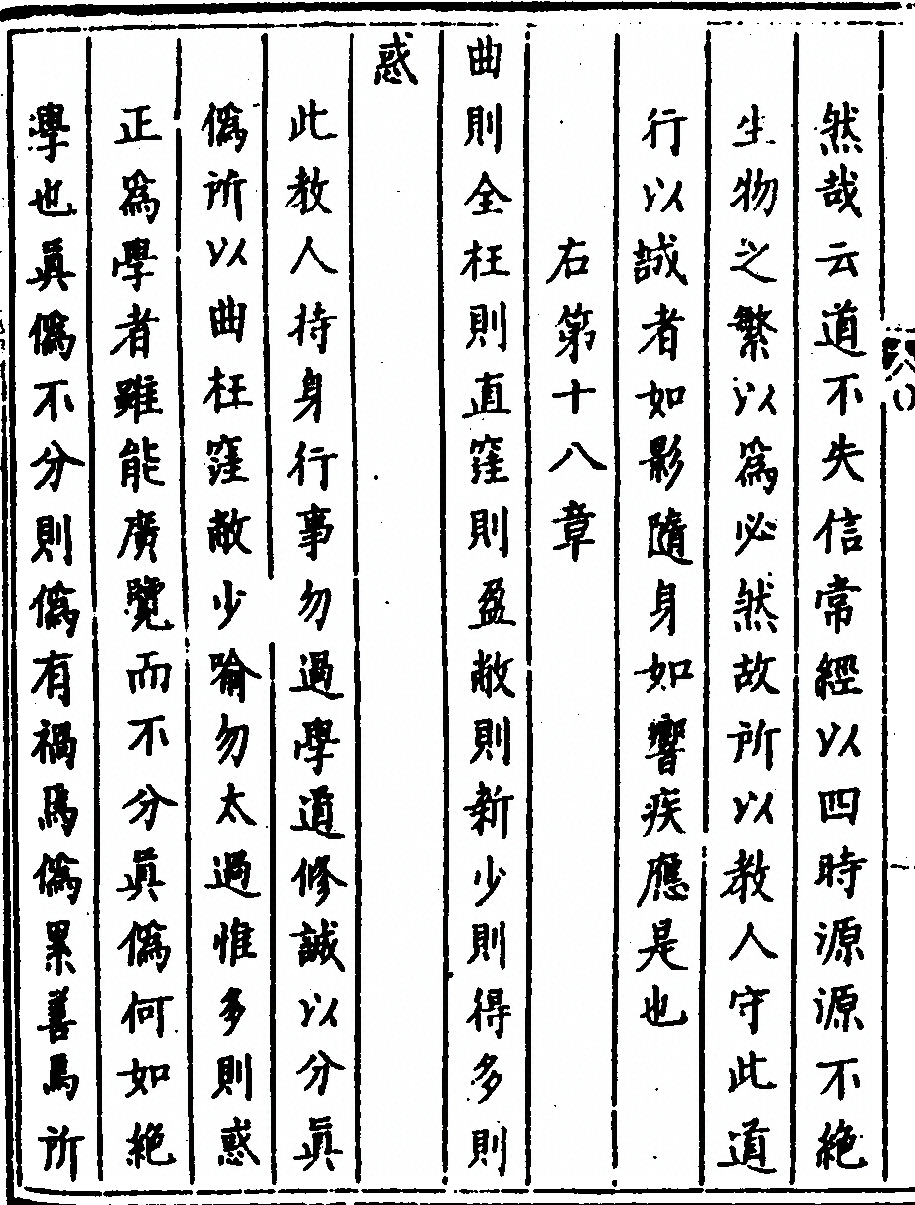 然哉云道不失信常經以四時源源不絶
生物之繁以爲必然故所以教人守此道
行以誠者如影隨身如響疾應是也
右第十八章
曲則全枉則直窪則盈敝則新少則得多則
惑
此教人持身行事勿過學道修誠以分眞
僞所以曲枉窪敝少喻勿太過惟多則惑
正爲學者雖能廣覽而不分眞僞何如絶
學也眞僞不分則僞有禍焉僞累善焉所